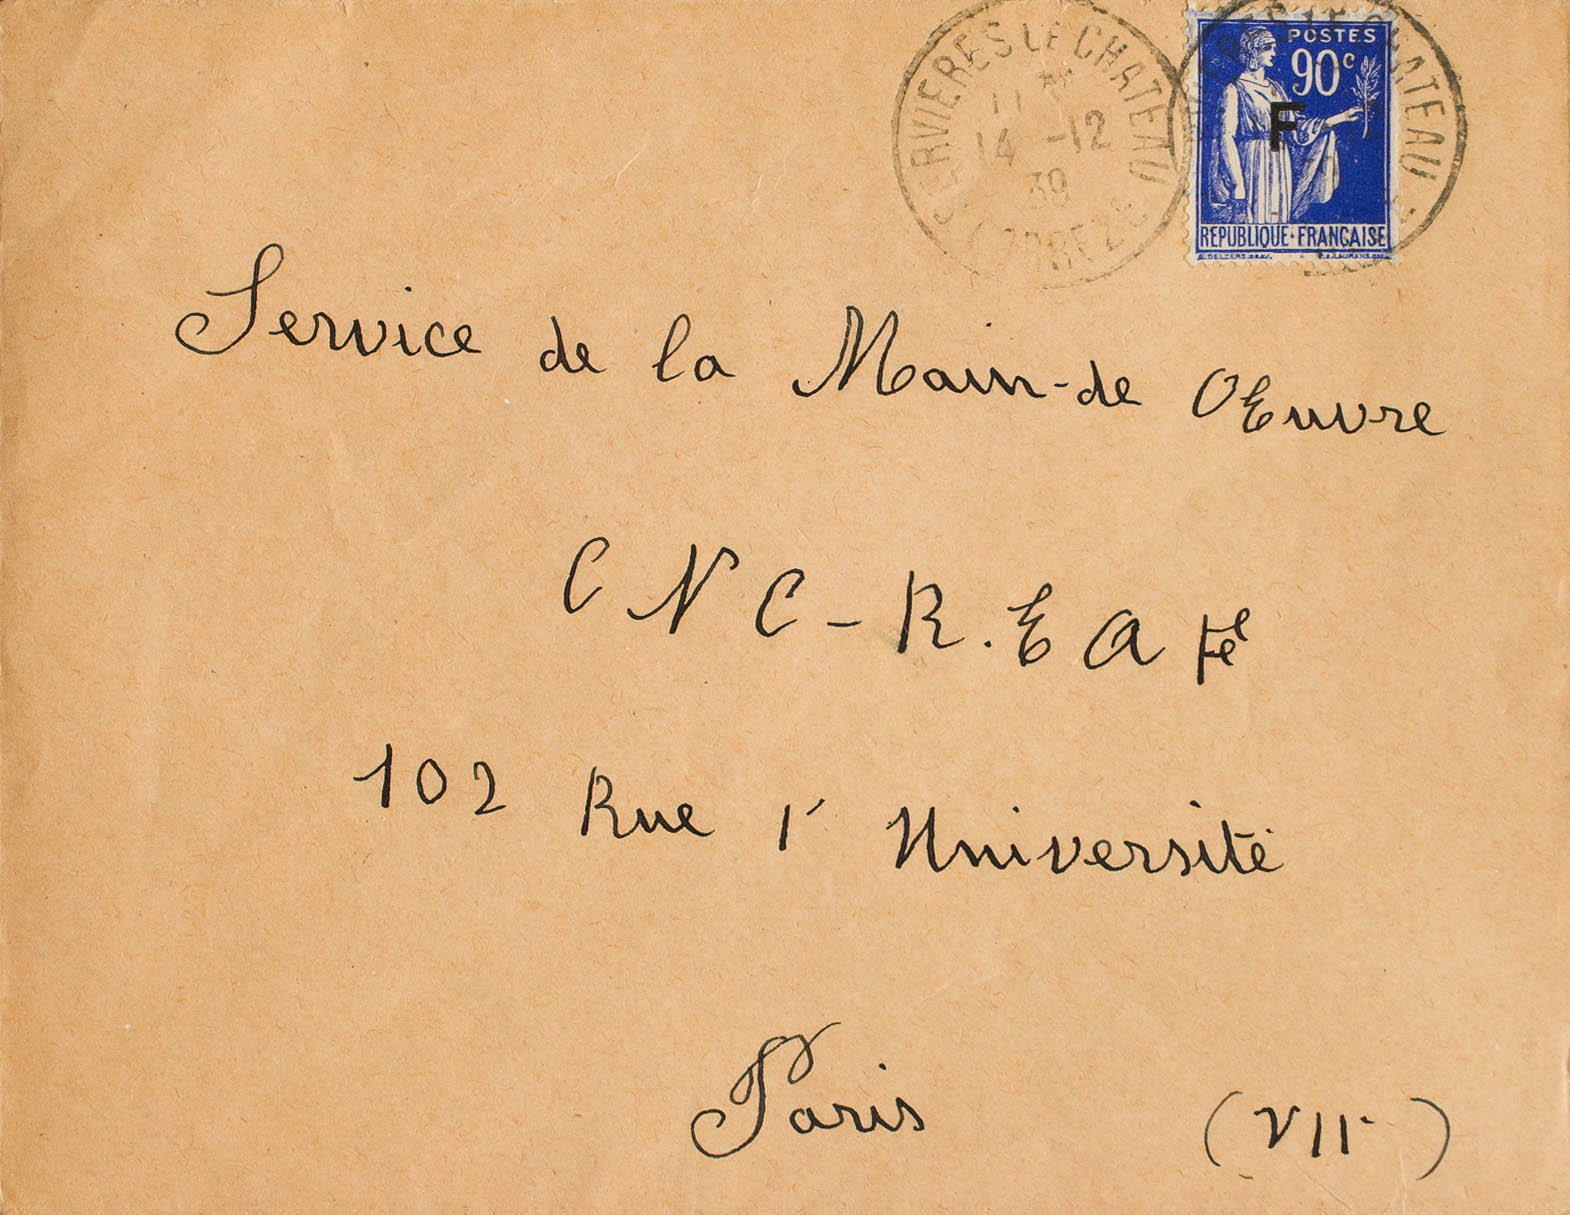 SERVIERES LE CHATEAU
14 -12
39
CORREZE
POSTES
90c
F
REPUBLIQUE·FRANÇAISE
Service de la Main-de OEuvre
C N C - R. E A Fe
102 Rue l' Université
Paris (VII)